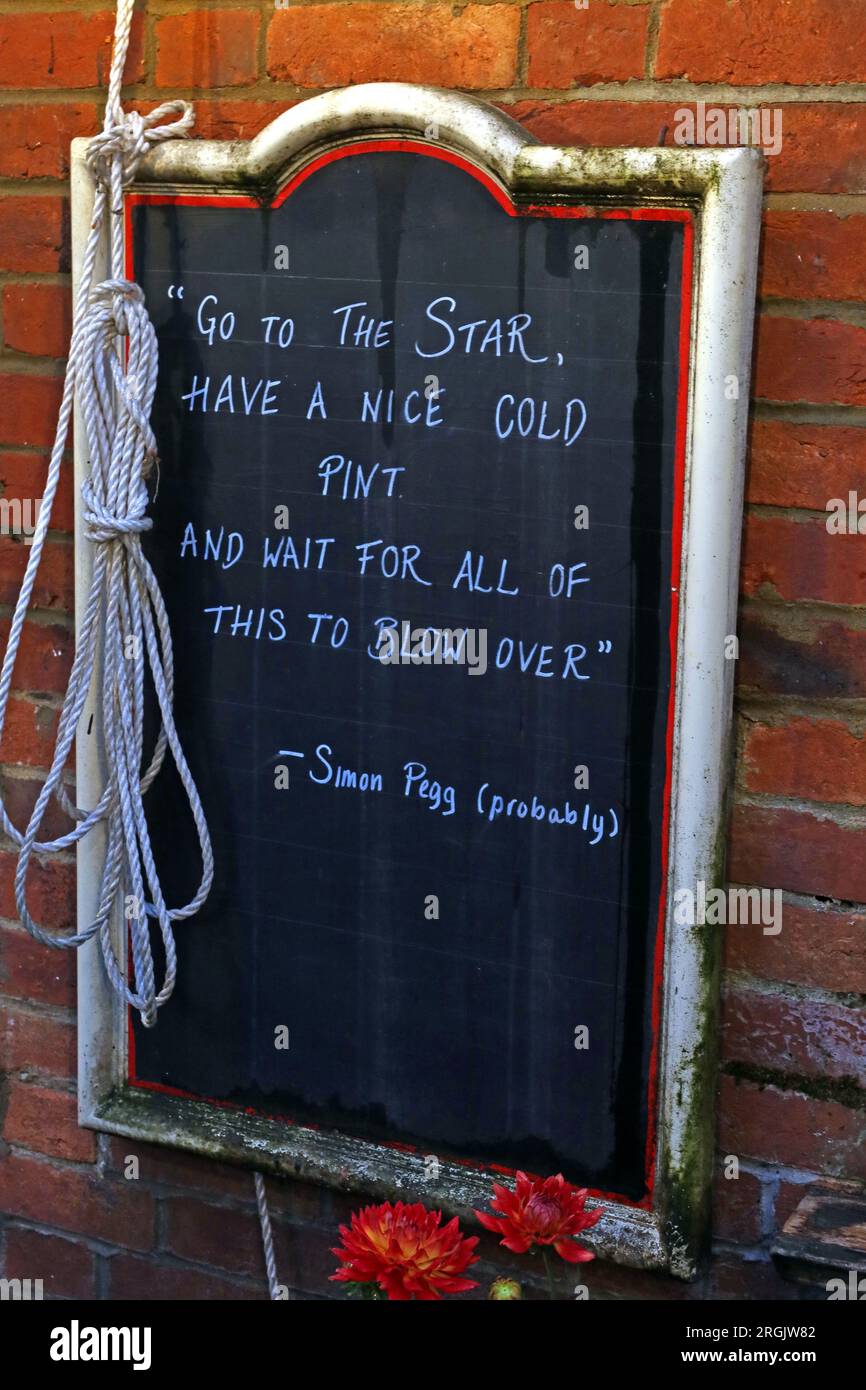 “GO TO THE STAR,
HAVE A NICE COLD
PINT.
AND WAIT FOR ALL OF
THIS TO BLOW OVER”
– Simon Pegg (probably)
alamy
alamy
Image ID: 2RGJW82
www.alamy.com